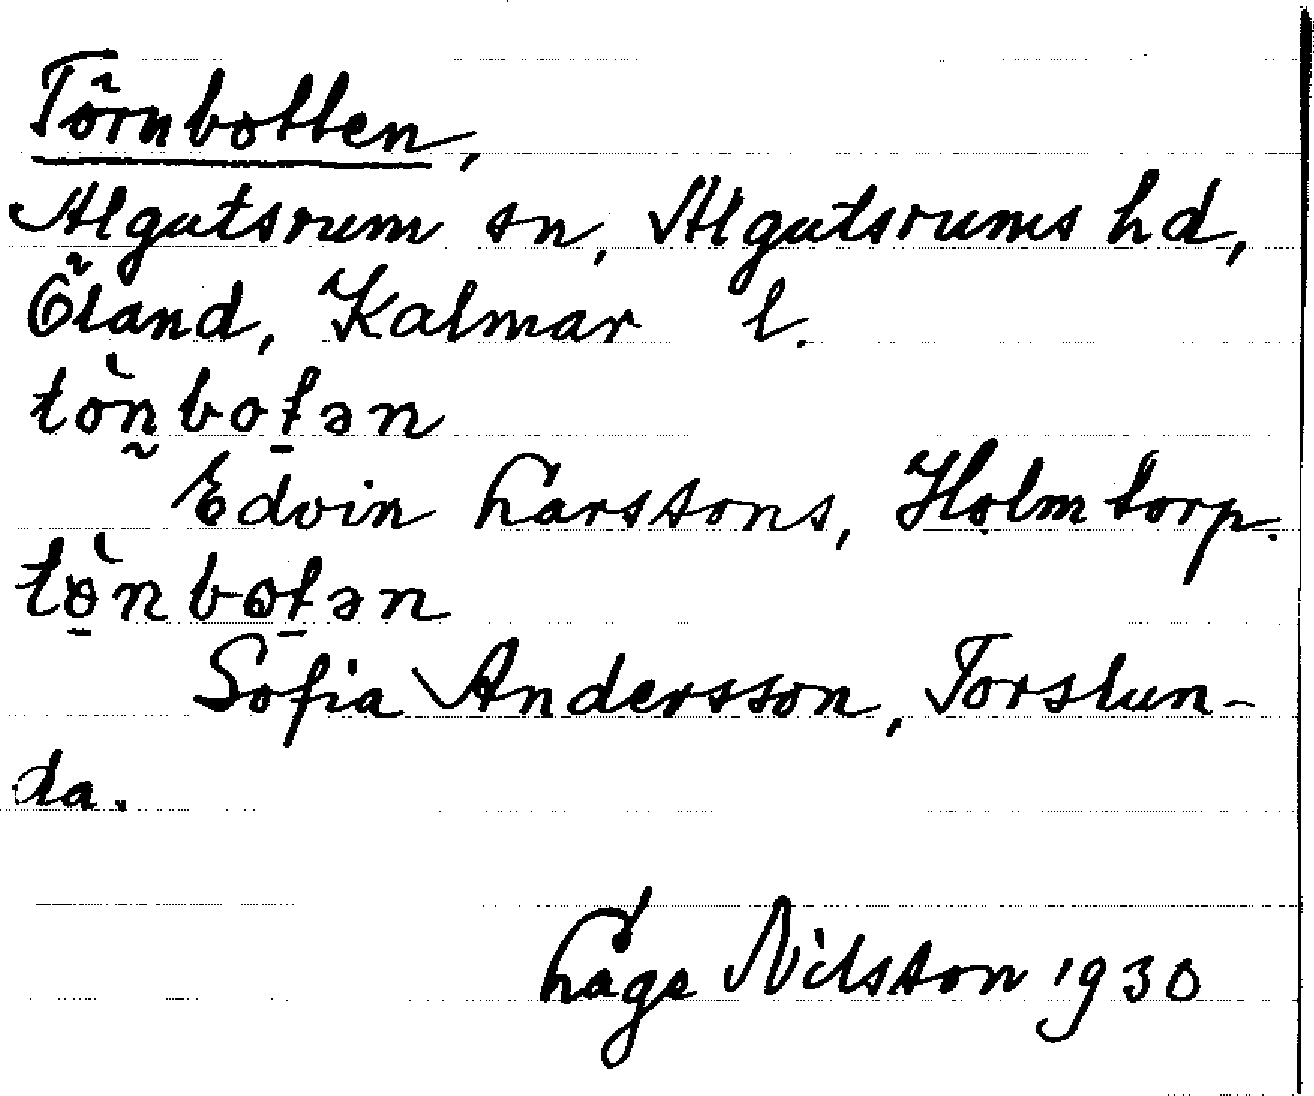 Törnbotten,
Algutsrum sn, Algutsrums hd,
Öland, Kalmar l.
tö̀n̰boṯən
Edvin Larssons, Holmtorp.
tò̱nboṯən
Sofia Andersson, Torslun-
da.
Låge Nilsson 1930